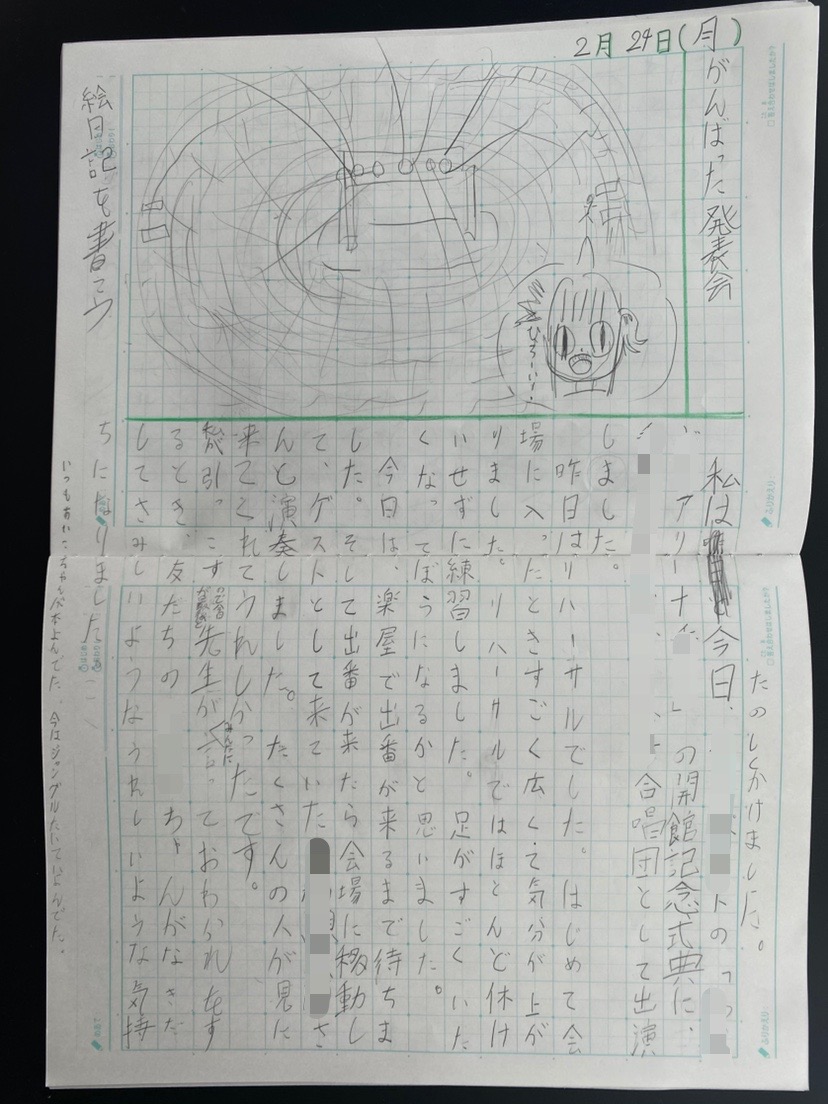 2月24日(月)
がんばった発表会
たのしくかけました。
私は今日、トの「
アリーナ」の開館記念式典に、
合唱団として出演
しました。
昨日はリハーサルでした。はじめて会
場に入ったときすごく広くて気分が上が
りました。リハーサルではほとんど休け
いせずに練習しました。足がすごくいた
くなってぼうになるかと思いました。
今日は、楽屋で出番が来るまで待ちま
した。そして出番が来たら会場に移動し
て、ゲストとして来ていたさ
んと演奏しました。たくさんの人が見に
来てくれてうれしかったです。
引っこす先生が言っておわかれをす
るとき、友だちのちゃんがなきだ
してさみしいようなうれしいような気持
ちになりました
ひろーい!
絵日記を書こう